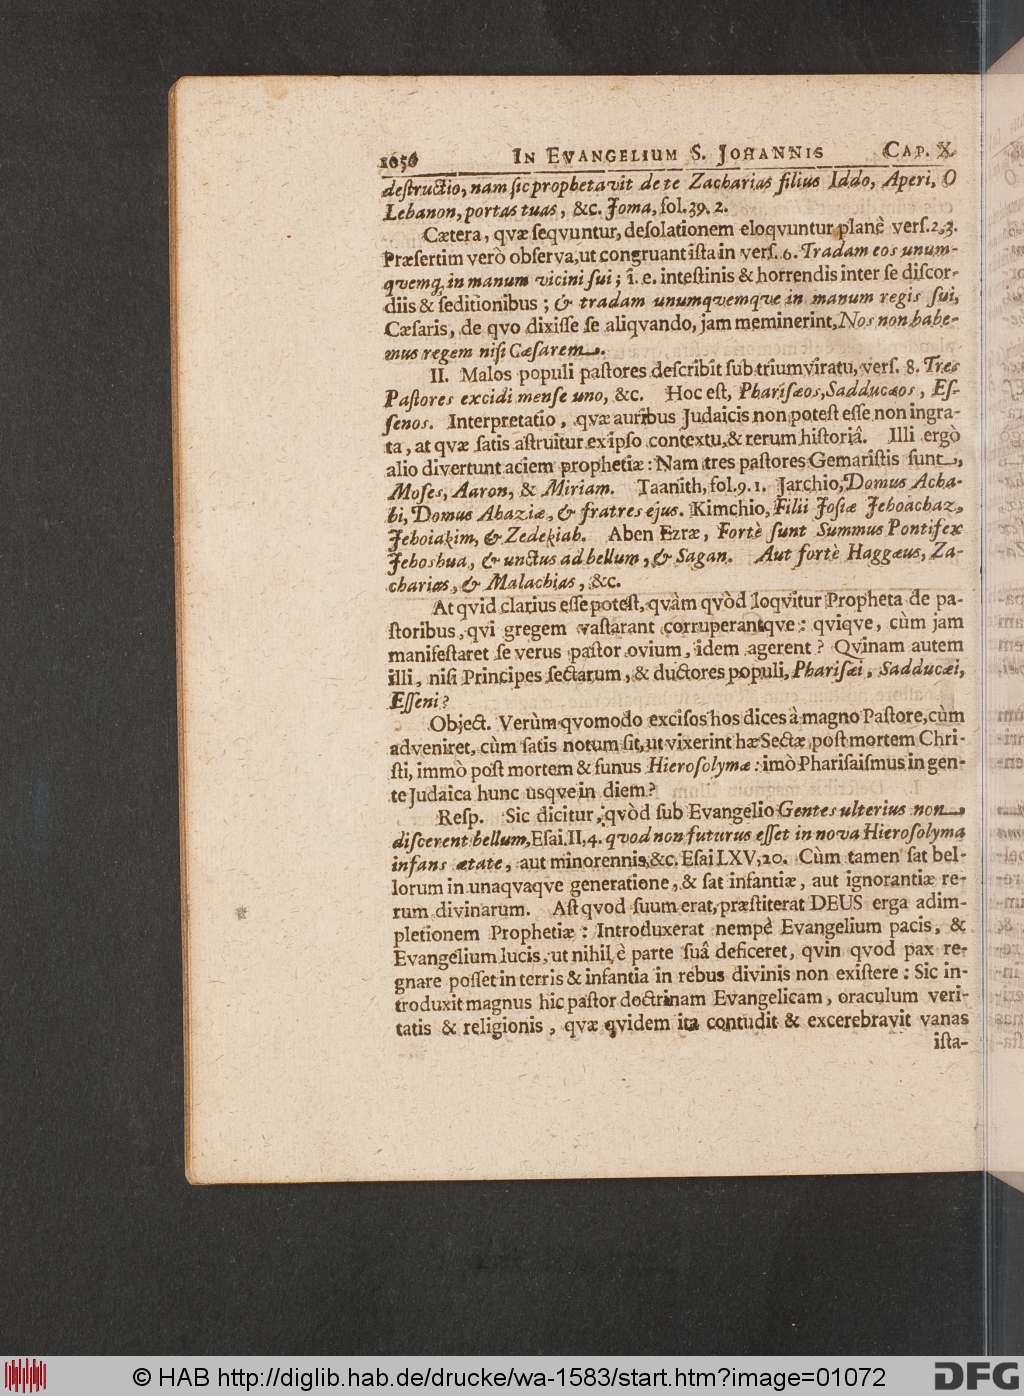 1056 IN EVANGELIUM S. JOHANNIS CAP. X.
deſtructio, nam ſic prophetavit de te Zacharias filius Iddo, Aperi, O
Lebanon, portas tuas, &c. Joma, fol. 39. 2.
Cætera, qvæ ſeqvuntur, deſolationem eloqvuntur planè verſ. 2, 3.
Præſertim verò obſerva, ut congruant iſta in verſ. 6. Tradam eos unum-
qvemq; in manum vicini ſui; i. e. inteſtinis & horrendis inter ſe diſcor-
diis & ſeditionibus; & tradam unumqvemqve in manum regis ſui,
Cæſaris, de qvo dixiſſe ſe aliqvando, jam meminerint, Nos non habe-
mus regem niſi Cæſarem.
II. Malos populi paſtores deſcribit ſub triumviratu, verſ. 8. Tres
Paſtores excidi menſe uno, &c. Hoc eſt, Phariſæos, Sadducæos, Eſ-
ſenos. Interpretatio, qvæ auribus Judaicis non poteſt eſſe non ingra-
ta, at qvæ ſatis aſtruitur ex ipſo contextu, & rerum hiſtoriâ. Illi ergò
alio divertunt aciem prophetiæ: Nam tres paſtores Gemariſtis ſunt,
Moſes, Aaron, & Miriam. Taanith, fol. 9. 1. Jarchio, Domus Acha-
bi, Domus Ahaziæ, & fratres ejus. Kimchio, Filii Joſiæ Jehoachaz,
Jehoiakim, & Zedekiah. Aben Ezræ, Fortè ſunt Summus Pontifex
Jehoshua, & unctus ad bellum, & Sagan. Aut fortè Haggæus, Za-
charias, & Malachias, &c.
At qvid clarius eſſe poteſt, qvàm qvòd loqvitur Propheta de pa-
ſtoribus, qvi gregem vaſtarant corruperantqve: qviqve, cùm jam
manifeſtaret ſe verus paſtor ovium, idem agerent? Qvinam autem
illi, niſi Principes ſectarum, & ductores populi, Phariſæi, Sadducæi,
Eſſeni?
Object. Verùm qvomodo exciſos hos dices à magno Paſtore, cùm
adveniret, cùm ſatis notum ſit, ut vixerint hæ Sectæ poſt mortem Chri-
ſti, immò poſt mortem & funus Hieroſolymæ: imò Phariſaiſmus in gen-
te Judaica hunc usqve in diem?
Reſp. Sic dicitur, qvòd ſub Evangelio Gentes ulterius non
diſcerent bellum, Eſai. II, 4. qvod non futurus eſſet in nova Hieroſolyma
infans ætate, aut minorennis, &c. Eſai LXV, 20. Cùm tamen ſat bel-
lorum in unaqvaqve generatione, & ſat infantiæ, aut ignorantiæ re-
rum divinarum. Aſt qvod ſuum erat, præſtiterat DEUS erga adim-
pletionem Prophetiæ: Introduxerat nempè Evangelium pacis, &
Evangelium lucis, ut nihil è parte ſuâ deficeret, qvin qvod pax re-
gnare poſſet in terris & infantia in rebus divinis non exiſtere: Sic in-
troduxit magnus hic paſtor doctrinam Evangelicam, oraculum veri-
tatis & religionis, qvæ qvidem ita contudit & excerebravit vanas
iſta-
© HAB http://diglib.hab.de/drucke/wa-1583/start.htm?image=01072
DFG